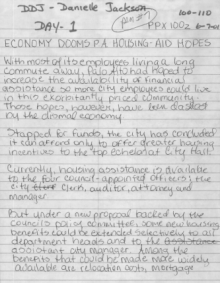 DDJ - Danielle Jackson
pin #7
100-110
DAY-1
PPX 1002 6-7-01
ECONOMY DOOMS P.A HOUSING-AID HOPES
With most of its employees living a long
commute away, Palo Alto had hoped to
increase the availability of financial
assistance so more city employees could live
in this exorbitantly priced community.
Those hopes, however, have been dashed
by the dismal economy.
Strapped for funds, the city has concluded
it can afford only to offer greater housing
incentives to the "top echelon at City Hall."
Currently, housing assistance is available
to the four council-appointed officers; the
city clerk, auditor, attorney and
manager.
But under a new proposal backed by the
council's policy committee, some new housing
benefits could be extended selectively to all
department heads and to the assistance
assistant city manager. Among the
benefits that could be made more widely
available are relocation costs, mortgage